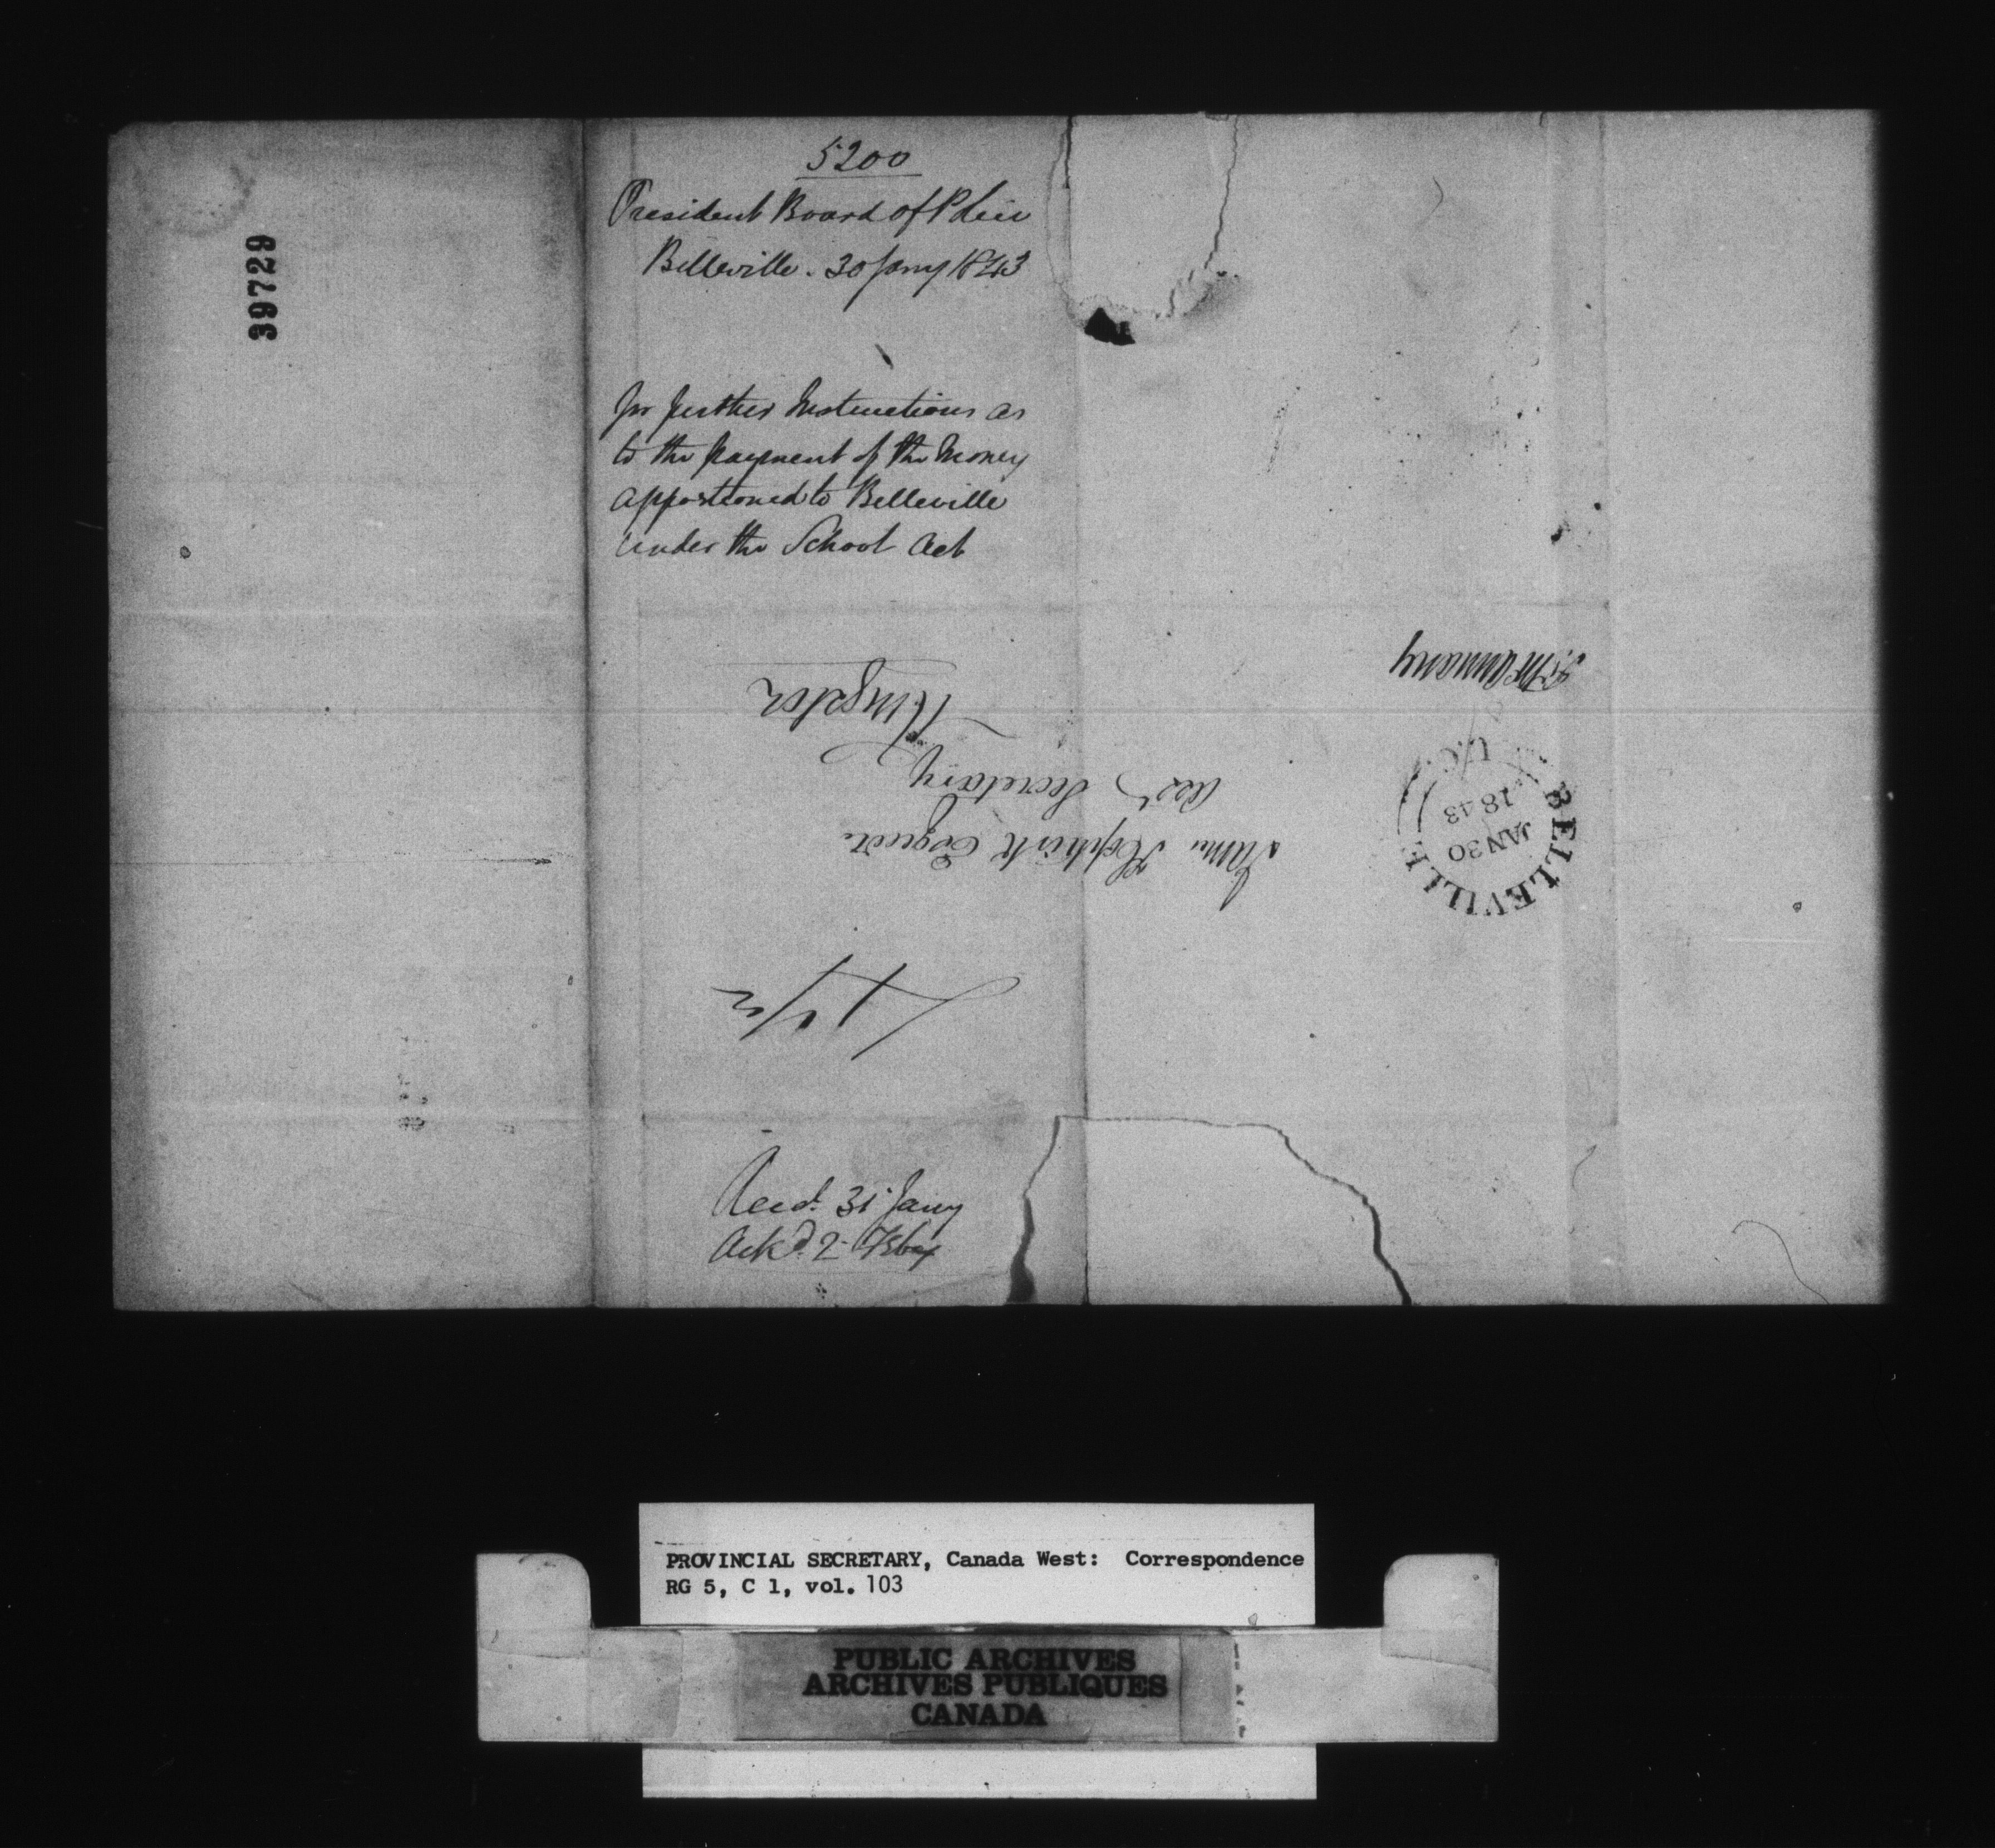 39729
5200
President Board of Police
Belleville. 30 Jany 1843
for further Instructions as
to the payment of the Money
apportioned to Belleville
under the School Act
James Hopkirk Esquire
Secretary
Kingston
BELLEVILLE
JAN 30
1843
U.C.
Recd. 31 Jany
Ackd. 2 Feby
PROVINCIAL SECRETARY, Canada West: Correspondence
RG 5, C 1, vol. 103
PUBLIC ARCHIVES
ARCHIVES PUBLIQUES
CANADA